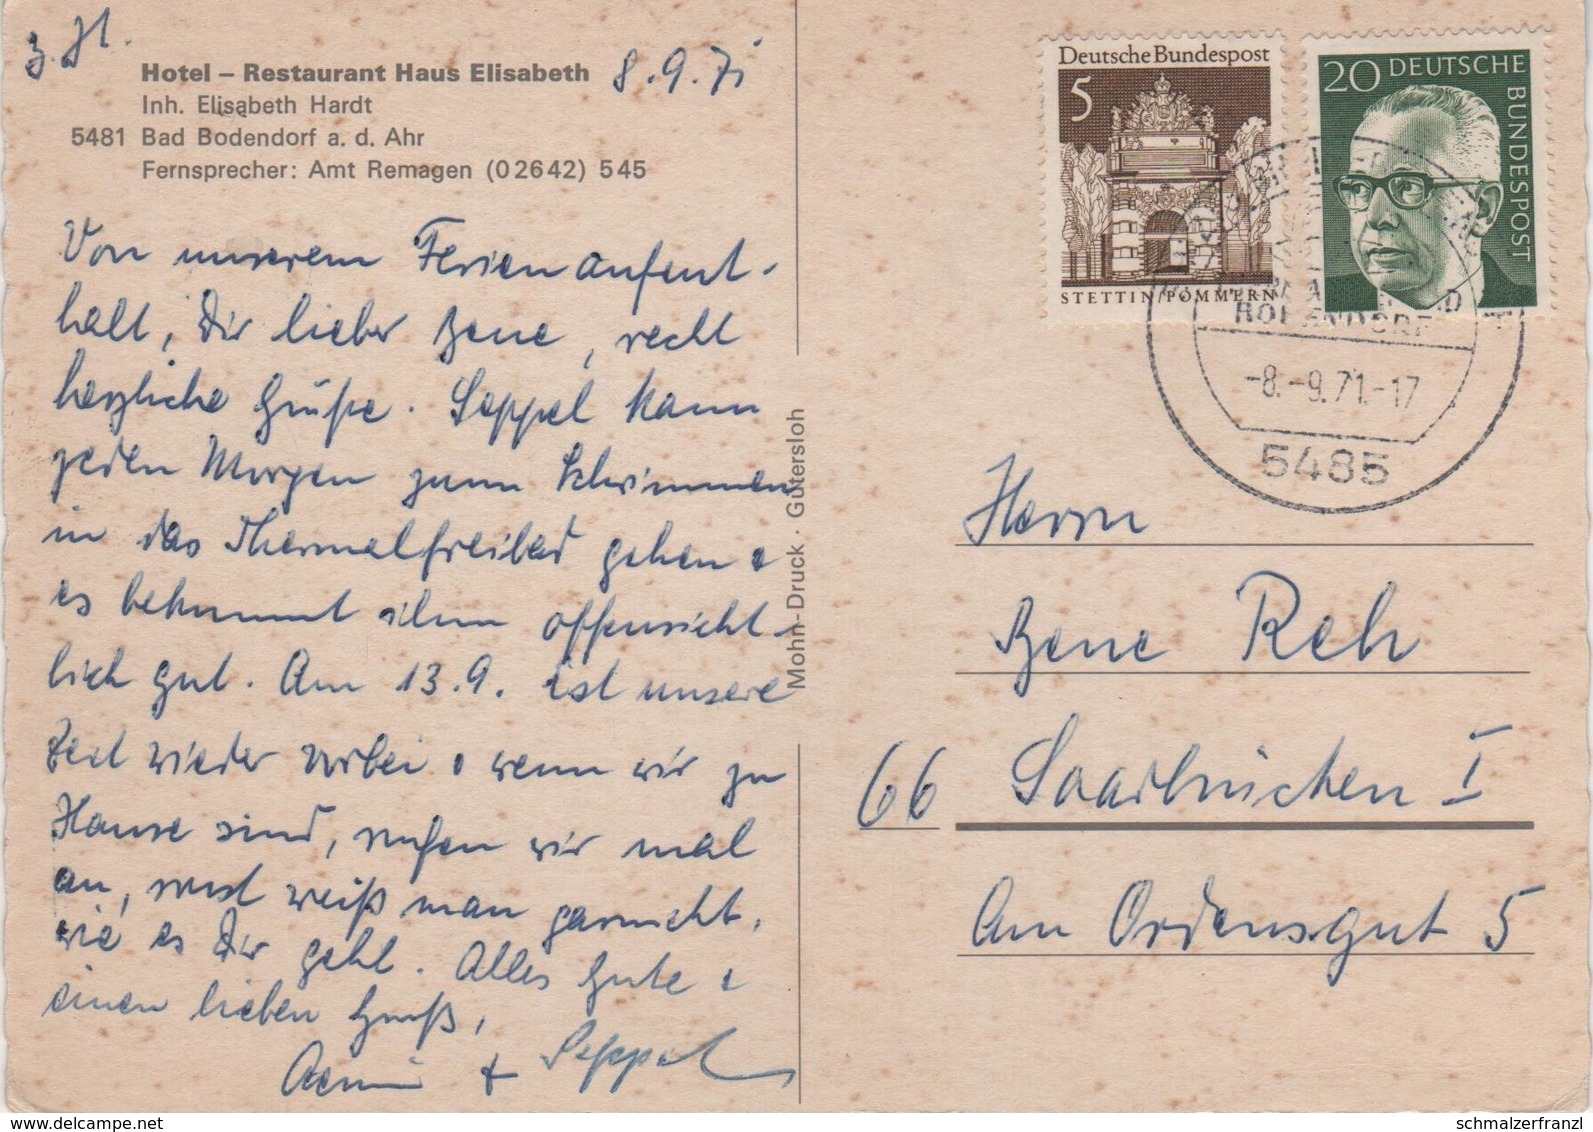 z. Zt.
8.9.71
Hotel – Restaurant Haus Elisabeth
Inh. Elisabeth Hardt
5481 Bad Bodendorf a. d. Ahr
Fernsprecher: Amt Remagen (02642) 545
Von unserem Ferienaufent-
halt, Dir lieber Bene, recht
herzliche Grüße. Seppel kann
jeden Morgen zum Schwimmen
in das Thermalfreibad gehen &
es bekommt ihm offensicht-
lich gut. Am 13.9. ist unsere
Zeit wieder vorbei & wenn wir zu
Hause sind, rufen wir mal
an, sonst weiß man garnicht,
wie es Dir geht. Alles Gute &
einen lieben Gruß,
+ Seppel
Mohn-Druck · Gütersloh
Deutsche Bundespost
5
STETTIN/POMMERN
20 DEUTSCHE
BUNDESPOST
BODENDORF
-8.-9.71.-17
5485
Herrn
Bene Reh
66 Saarbrücken I
Am Ordensgut 5
www.schmalzerfranzl.com